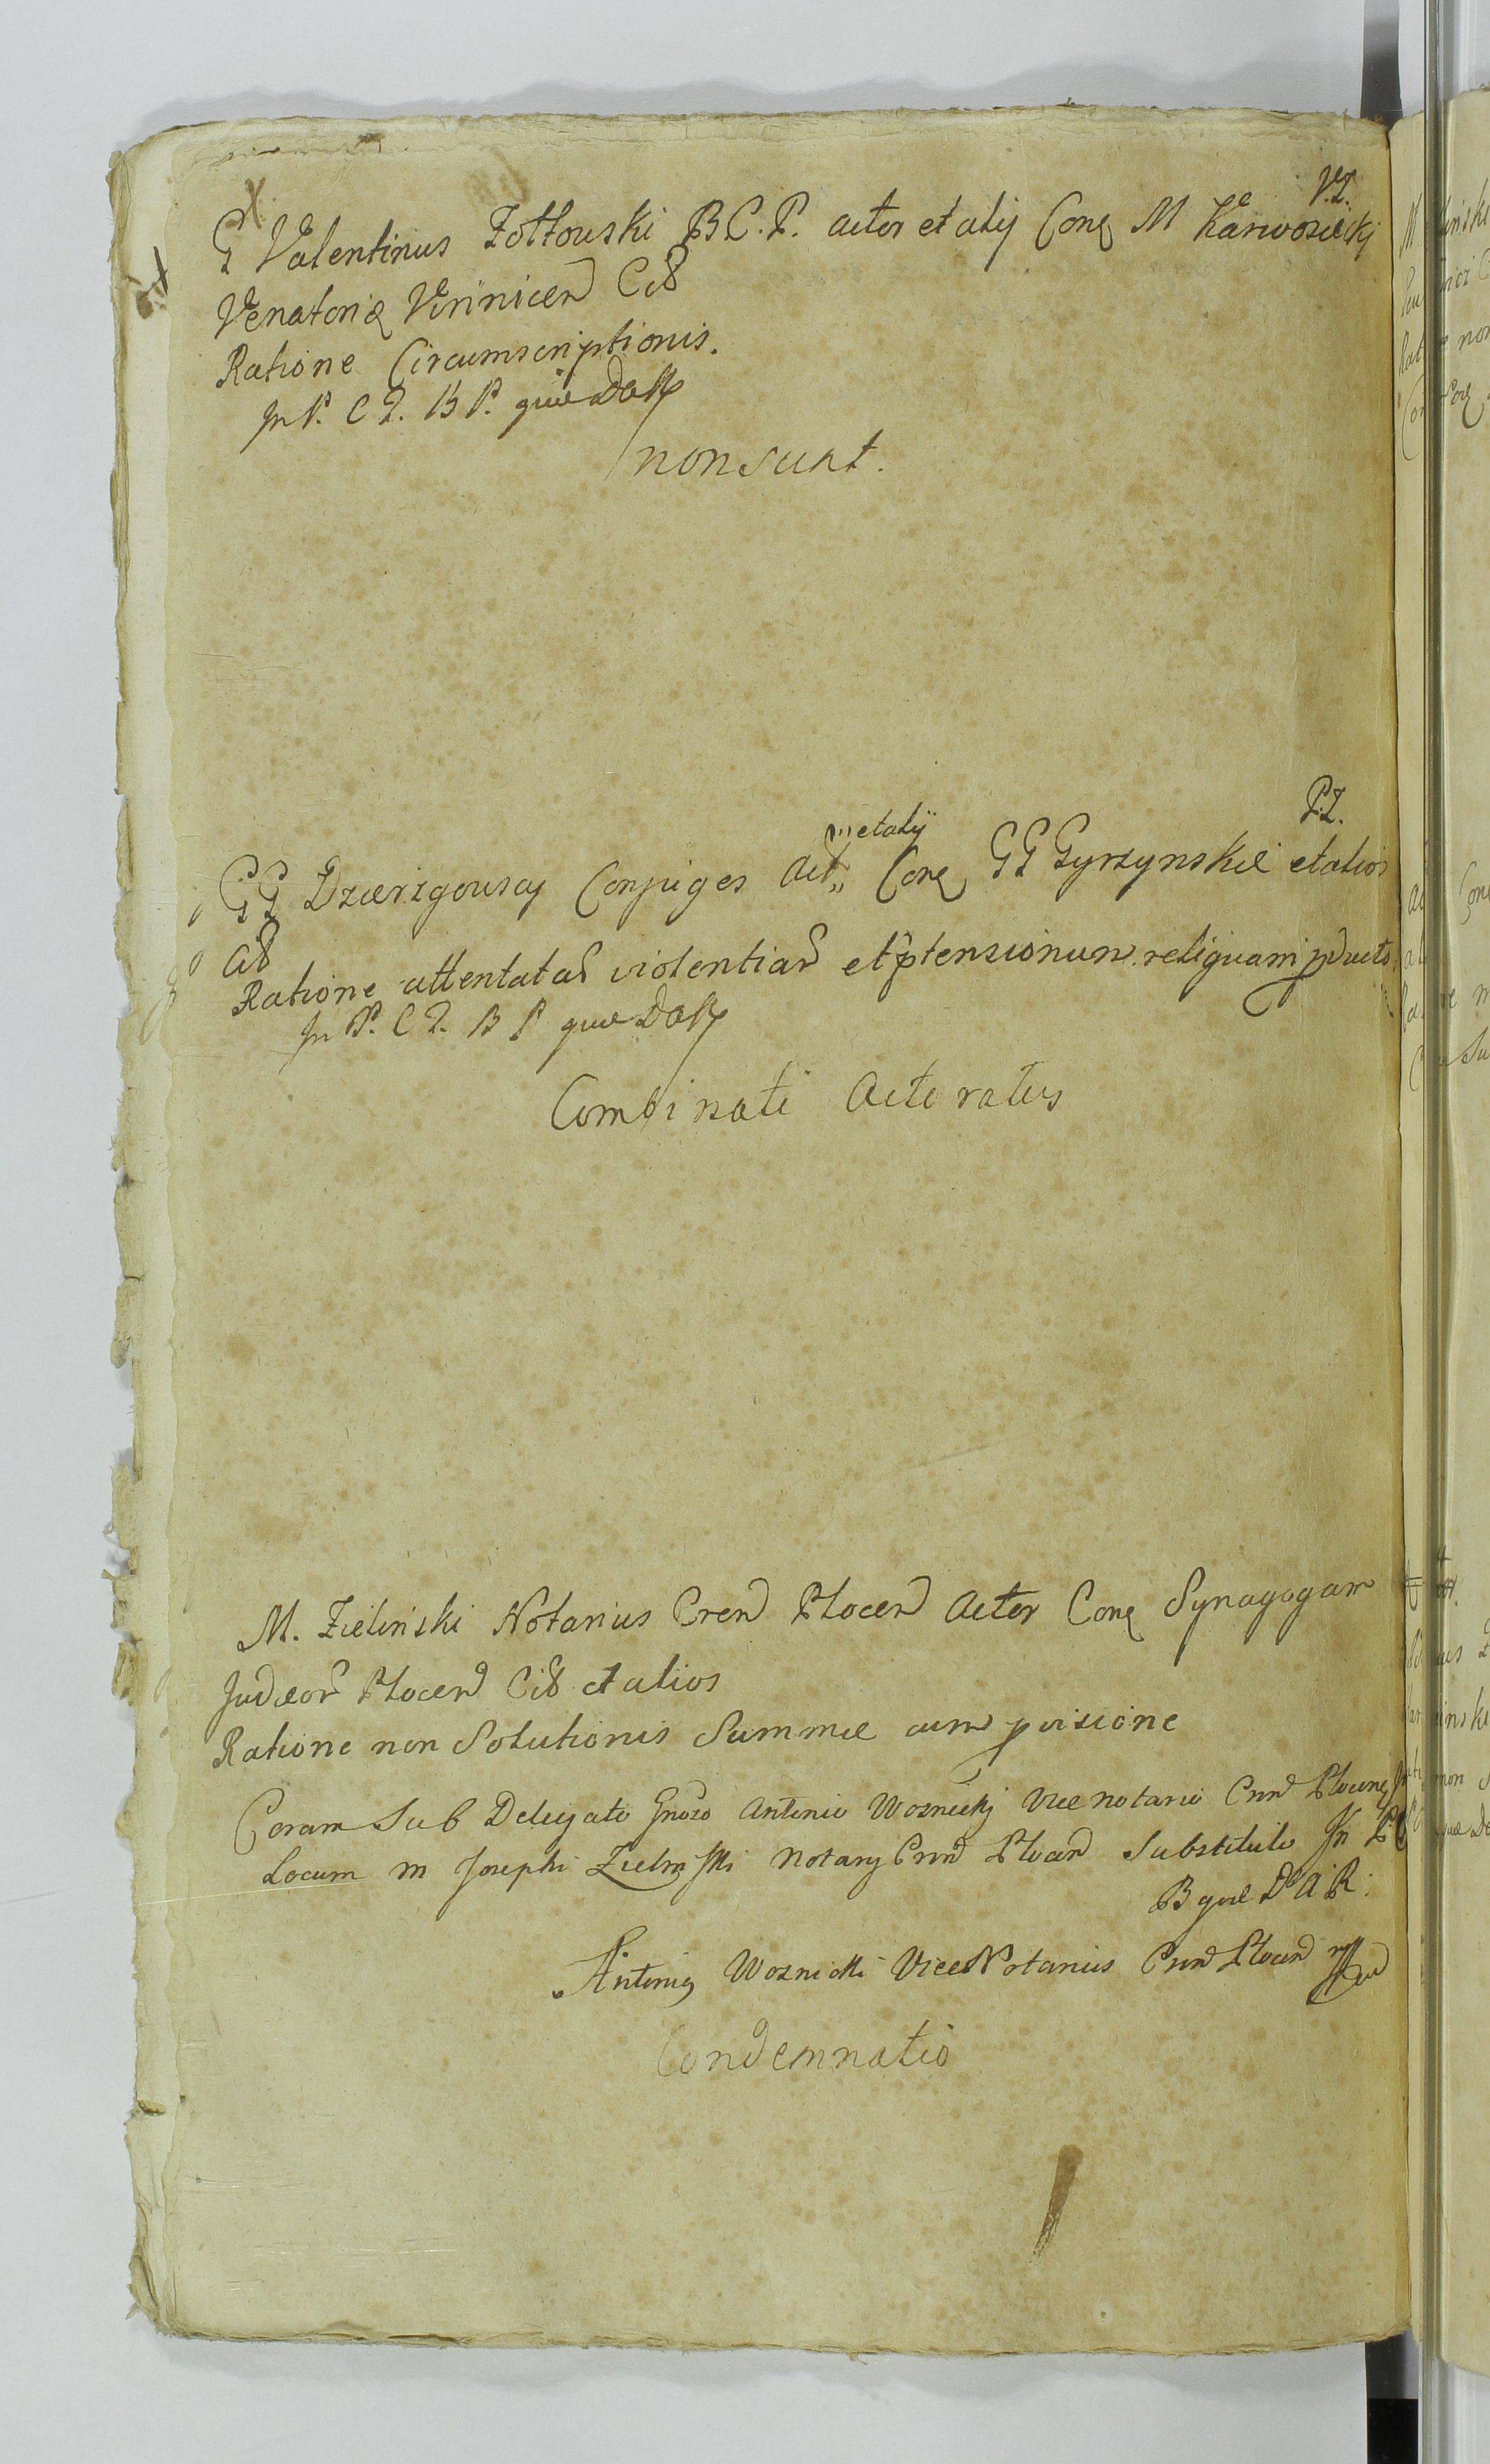 V.Z.
G Valentinus Zołtowski B.C.P. actor et alij Conq M Karwosiecki
Venatorē Winnicen Cit
Ratione Circumscriptionis.
In P. C T. B P. quæ DoR
non sunt.
P.Z.
et alij
GG Dzierzgowscy Conjuges Act,, Conq GG Gyrzynskie et alios
Cit
Ratione attentatar violentiar et ptensionum reliquam pduct
In P. C T. B P quæ DoR
Combinati Actoratus
M. Zielinski Notarius Cren Plocen Actor Conq Synagogam
Judæor Plocen Cit et alios
Ratione non Solutionis Summæ cum pvisione
Coram Sub Delegato Gnoso Antonio Woznicki Vice notario Crn Plocen In
Locum M Josephi Zielinski Notarij Crn Plocen Substituto In P C
B quæ D A R.
Antonig Woznicki ViceNotarius Crn Plocen
Condemnatio